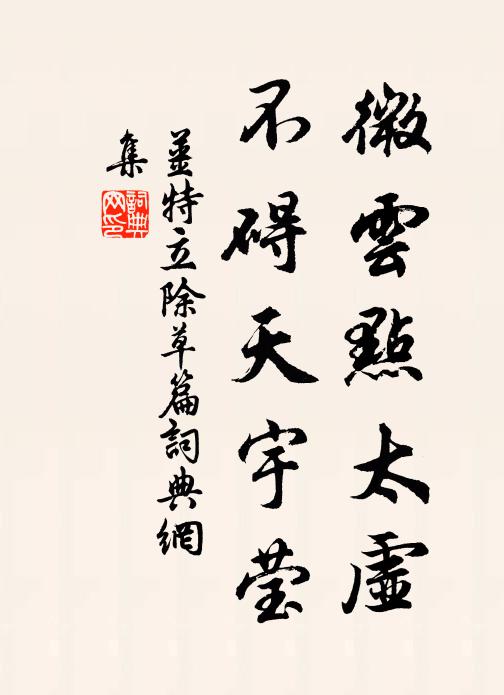 微雲點太虛
不碍天宇莹
姜特立除草篇詞典網
集
詞典
网印